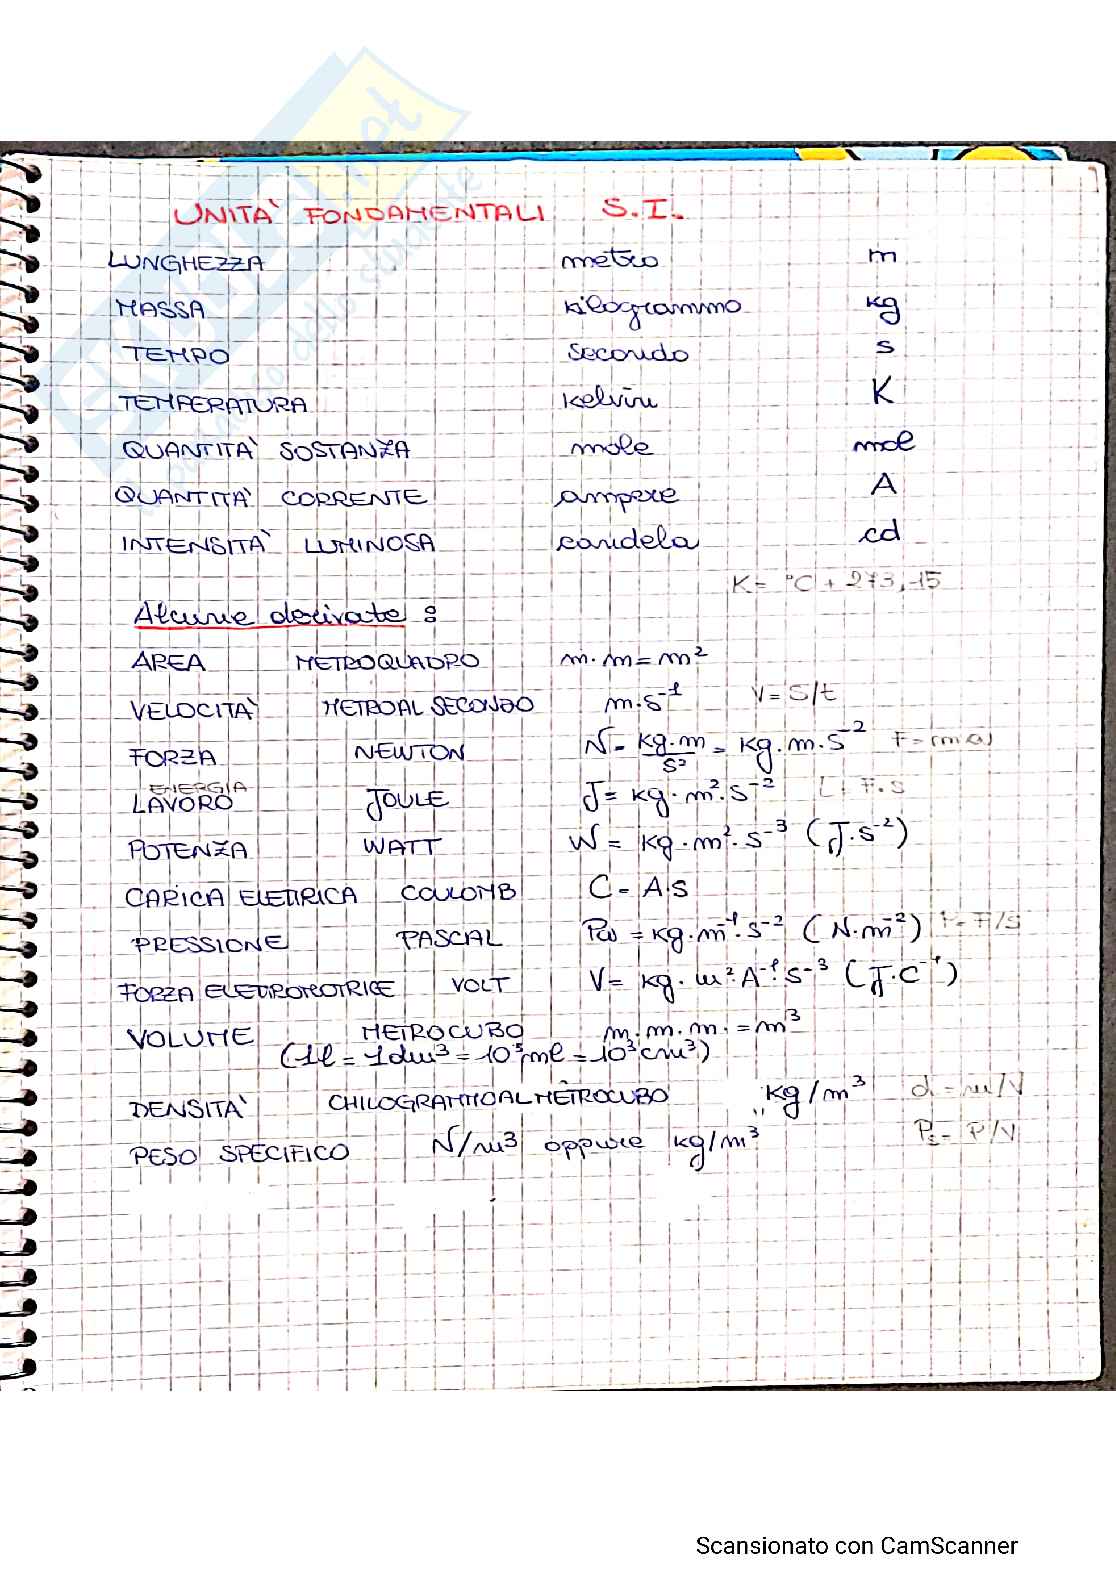 UNITA' FONDAMENTALI S.I.
LUNGHEZZA metro m
MASSA kilogrammo kg
TEMPO secondo s
TEMPERATURA kelvin K
QUANTITA' SOSTANZA mole mol
QUANTITA' CORRENTE ampere A
INTENSITA' LUMINOSA candela cd
K = °C + 273,15
Alcune derivate :
AREA METROQUADRO m·m = m²
VELOCITA' METROALSECONDO m·s⁻¹ V = S/t
FORZA NEWTON N = kg·m/s² = kg·m·s⁻² F = m·a
ENERGIA
LAVORO JOULE J = kg·m²·s⁻² L = F·S
POTENZA WATT W = kg·m²·s⁻³ (J·s⁻²)
CARICA ELETTRICA COULOMB C = A·s
PRESSIONE PASCAL Pa = kg·m⁻¹·s⁻² (N·m⁻²) P = F/S
FORZA ELETTROMOTRICE VOLT V = kg·m²·A⁻¹·s⁻³ (J·C⁻¹)
VOLUME METROCUBO m·m·m· = m³
(1l = 1dm³ = 10³ml = 10³cm³)
DENSITA' CHILOGRAMMOALMETROCUBO kg/m³ d = m/V
PESO SPECIFICO N/m³ oppure kg/m³ Ps = P/V
Scansionato con CamScanner